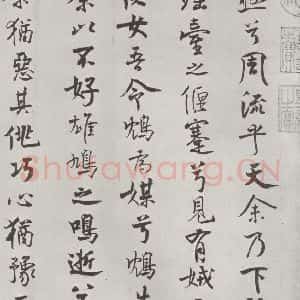 兮周流乎天余乃下
瑤臺之偃蹇兮見有娀
佚女吾令鴆為媒兮鴆
余以不好雄鳩之鳴逝兮
猶惡其佻巧心猶豫
Shufawang.CN